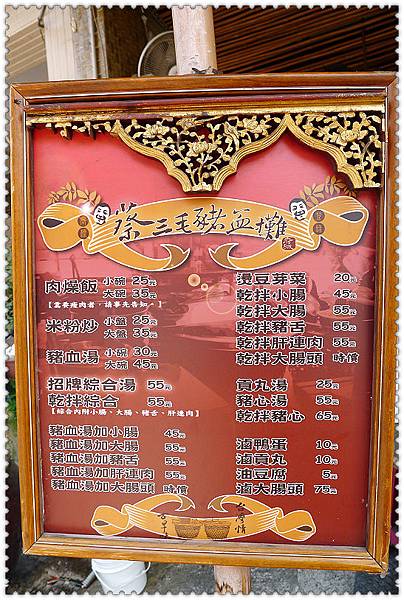 蔡三毛豬血攤
肉燥飯 小碗 25元
大碗 35元
【需要瘦肉者，請事先告知。】
米粉炒 小盤 25元
大盤 35元
豬血湯 小碗 30元
大碗 45元
招牌綜合湯 55元
乾拌綜合 55元
【綜合內附小腸、大腸、豬舌、肝連肉】
豬血湯加小腸 45元
豬血湯加大腸 55元
豬血湯加豬舌 55元
豬血湯加肝連肉 55元
豬血湯加大腸頭 時價
燙豆芽菜 20元
乾拌小腸 45元
乾拌大腸 55元
乾拌豬舌 55元
乾拌肝連肉 55元
乾拌大腸頭 時價
貢丸湯 25元
豬心湯 55元
乾拌豬心 65元
滷鴨蛋 10元
滷貢丸 10元
油豆腐 5元
滷大腸頭 75元
台灣情